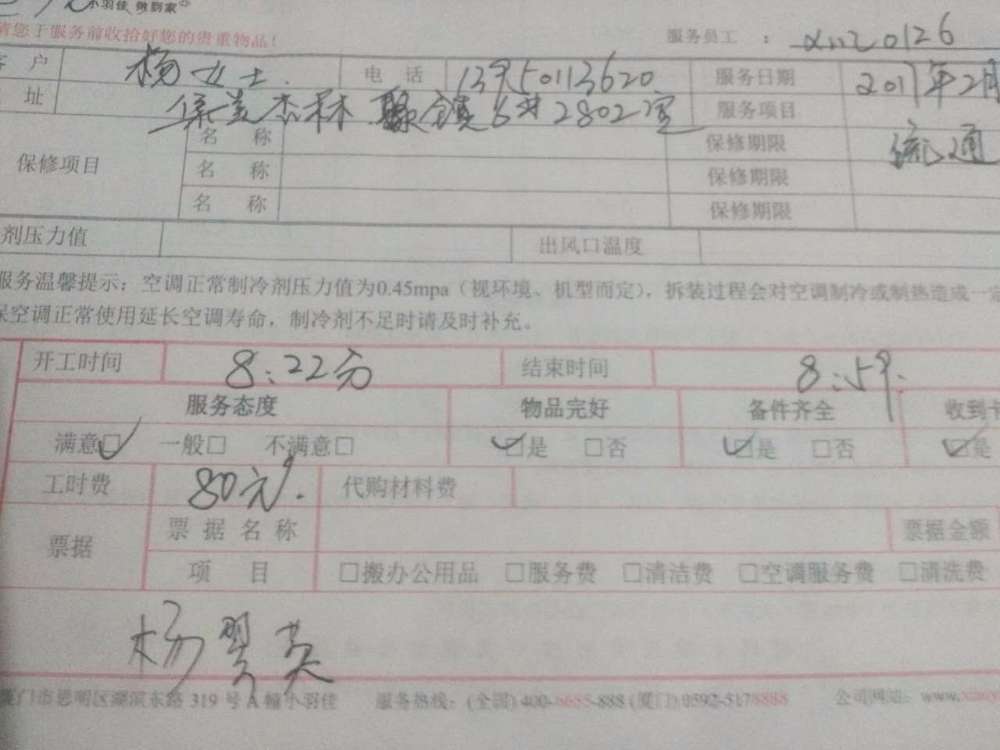 小羽佳 做到家
请您于服务前收拾好您的贵重物品！ 服务员工：xm20126
客 户 杨女士. 电 话 13950113620 服务日期 2017年2月
址 集美杏林 6# 2802室 服务项目
保修项目 名 称 保修期限 疏通
名 称 保修期限
名 称 保修期限
剂压力值 出风口温度
服务温馨提示：空调正常制冷剂压力值为0.45mpa（视环境、机型而定），拆装过程会对空调制冷或制热造成一定
保空调正常使用延长空调寿命，制冷剂不足时请及时补充。
开工时间 8:22分 结束时间 8:59.
服务态度 物品完好 备件齐全 收到卡
满意□ 一般□ 不满意□ □是 □否 □是 □否 □是
工时费 80元. 代购材料费
票据 票 据 名 称 票据金额
项 目 □搬办公用品 □服务费 □清洁费 □空调服务费 □清洗费
杨翠英
厦门市思明区湖滨东路 319 号 A 幢小羽佳 服务热线：(全国) 400-6685-888 (厦门) 0592-5178888 公司网站：www.xiaoy